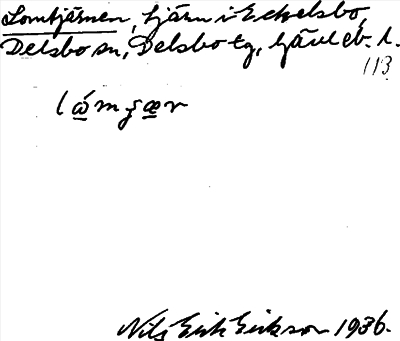 Lomtjärnen, tjärn i Eckelsbo,
Delsbo sn, Delsbo tg, Gävleb. l.
113
Nils Erik Erikson 1936.